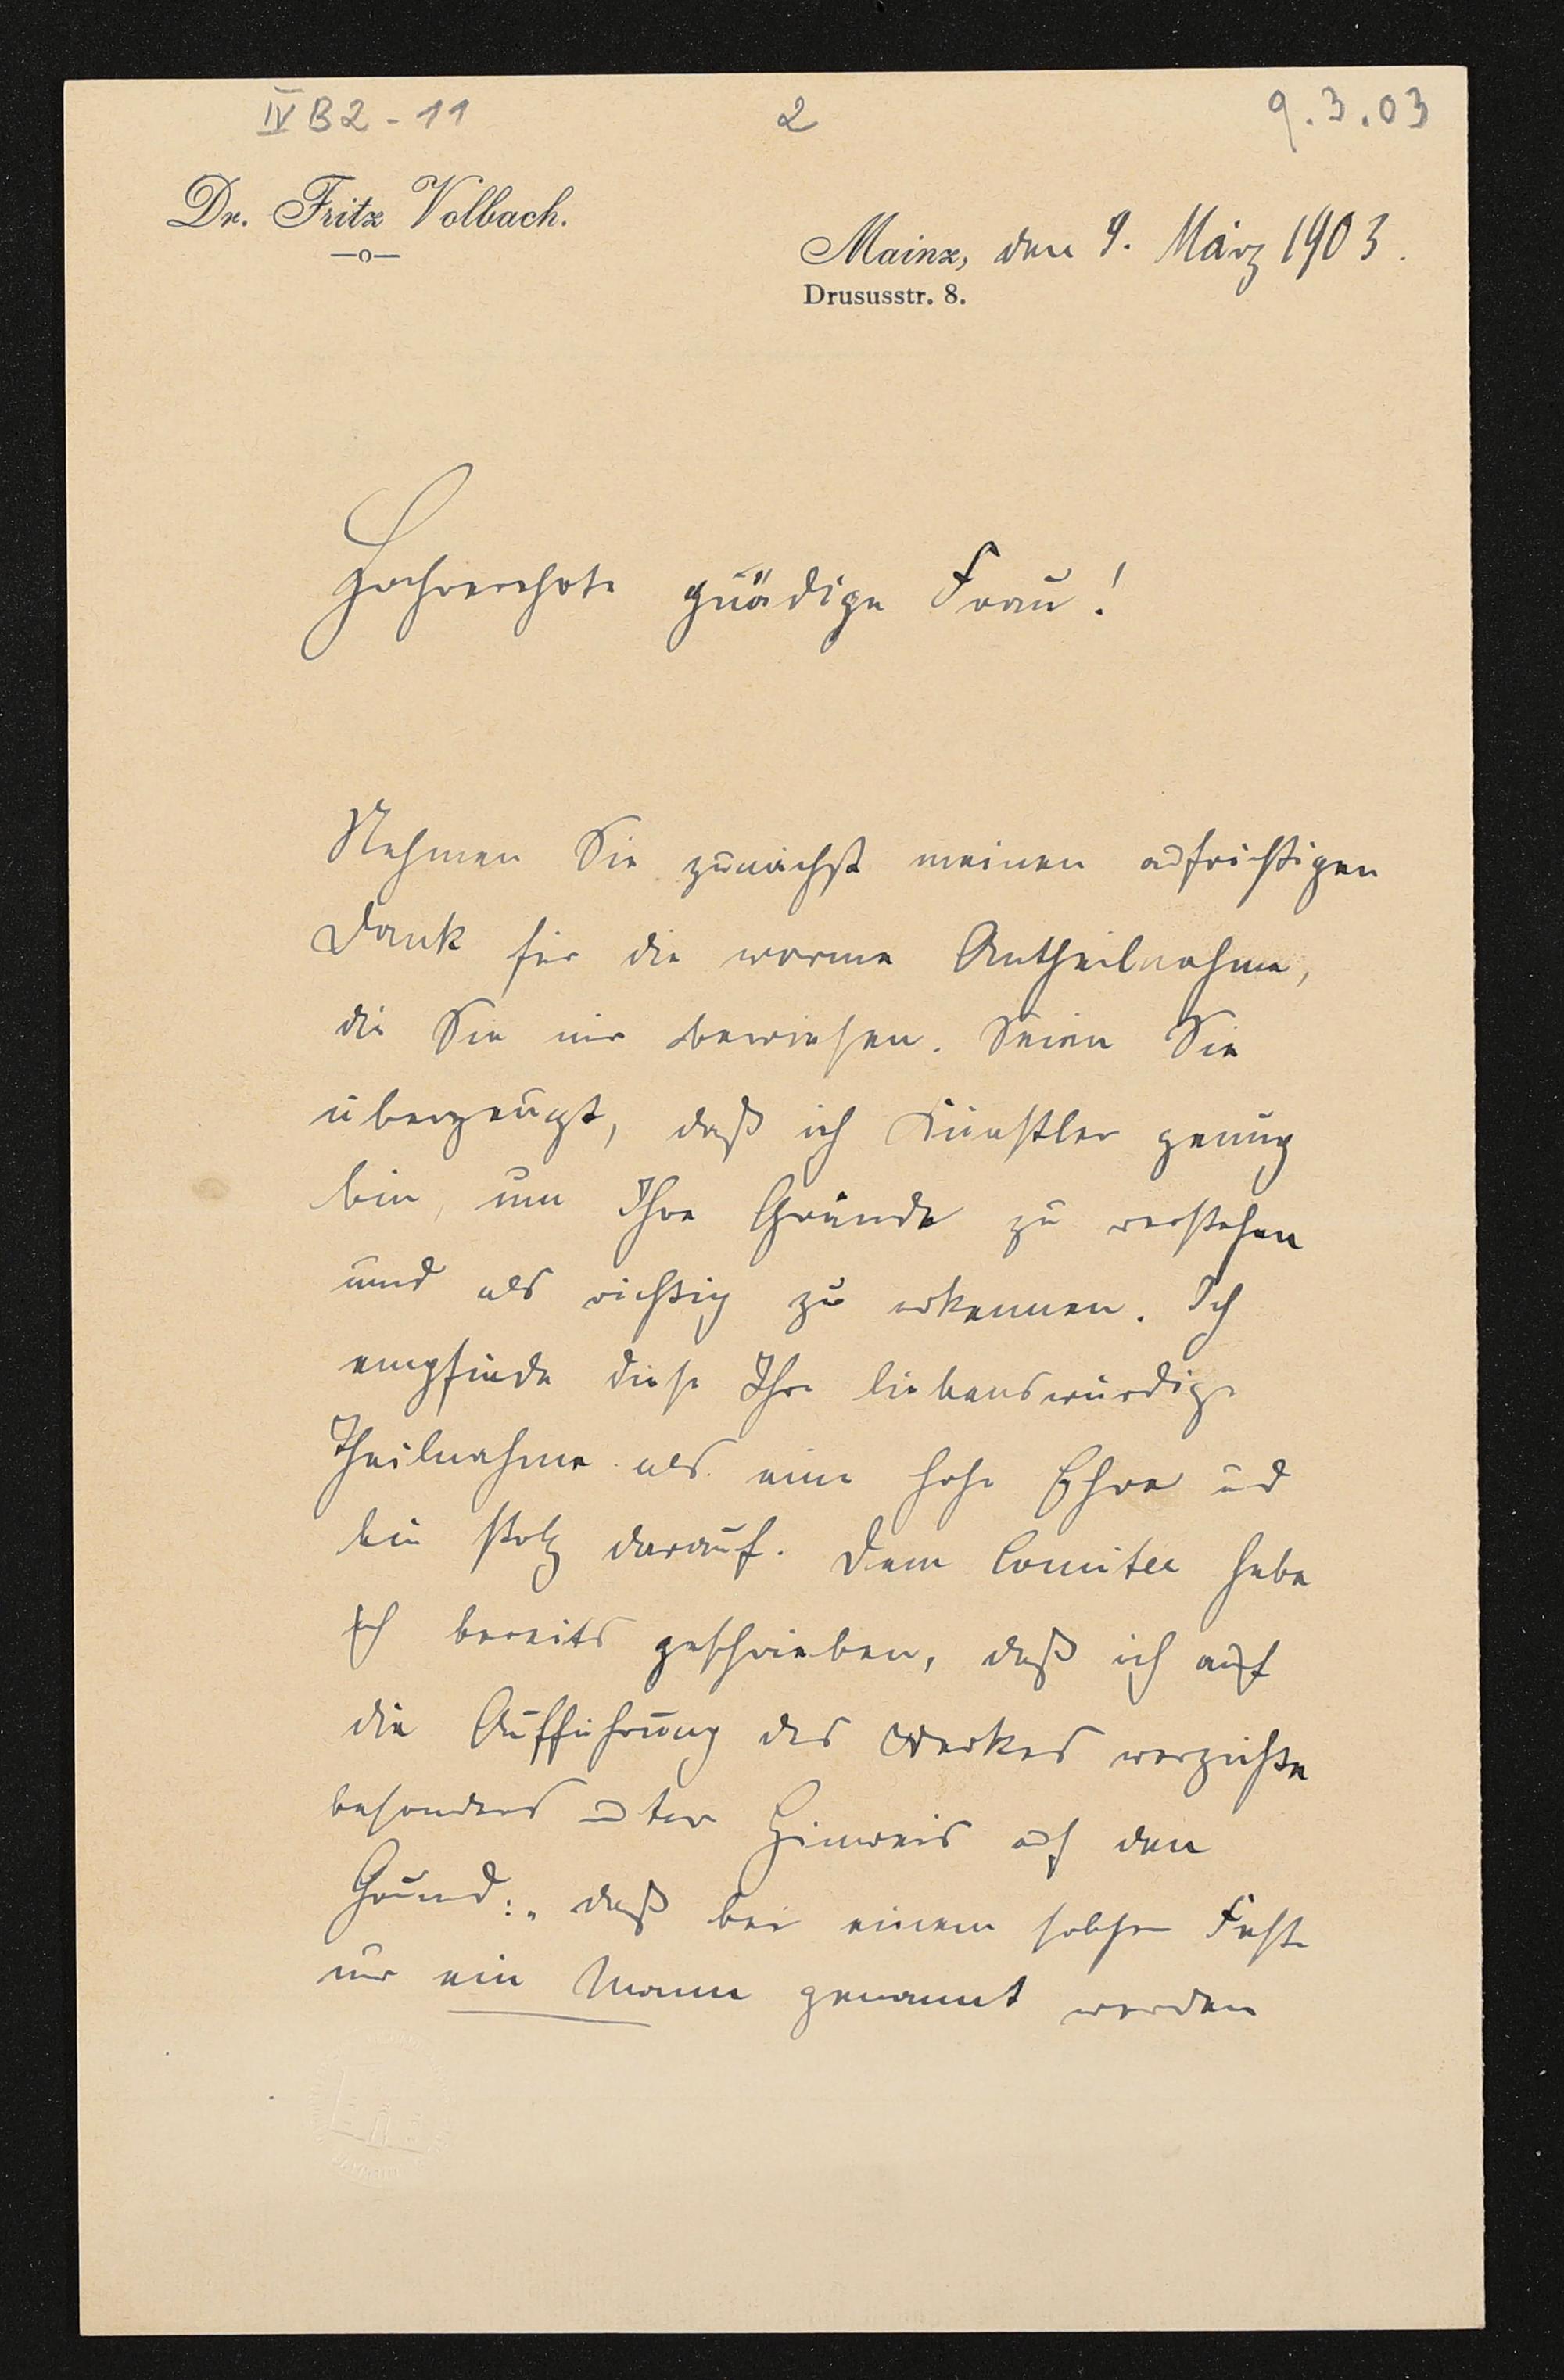 IV B2 - 11 2 9.3.03
Dr. Fritz Volbach.
Mainz, den 9. März 1903.
Drususstr. 8.
Hochverehrte gnädige Frau!
Nehmen Sie zunächst meinen aufrichtigen
Dank für die warme Antheilnahme,
die Sie mir bewiesen. Seien Sie
überzeugt, daß ich Künstler genug
bin, um Ihre Gründe zu verstehen
und als richtig zu erkennen. Ich
empfinde diese Ihre liebenswürdige
Theilnahme als eine hohe Ehre und
bin stolz darauf. Dem Comitee habe
ich bereits geschrieben, daß ich auf
die Aufführung des Werkes verzichte
besonders unter Hinweis auf den
Grund: „daß bei einem solchen Feste
nur ein Mann genannt werden